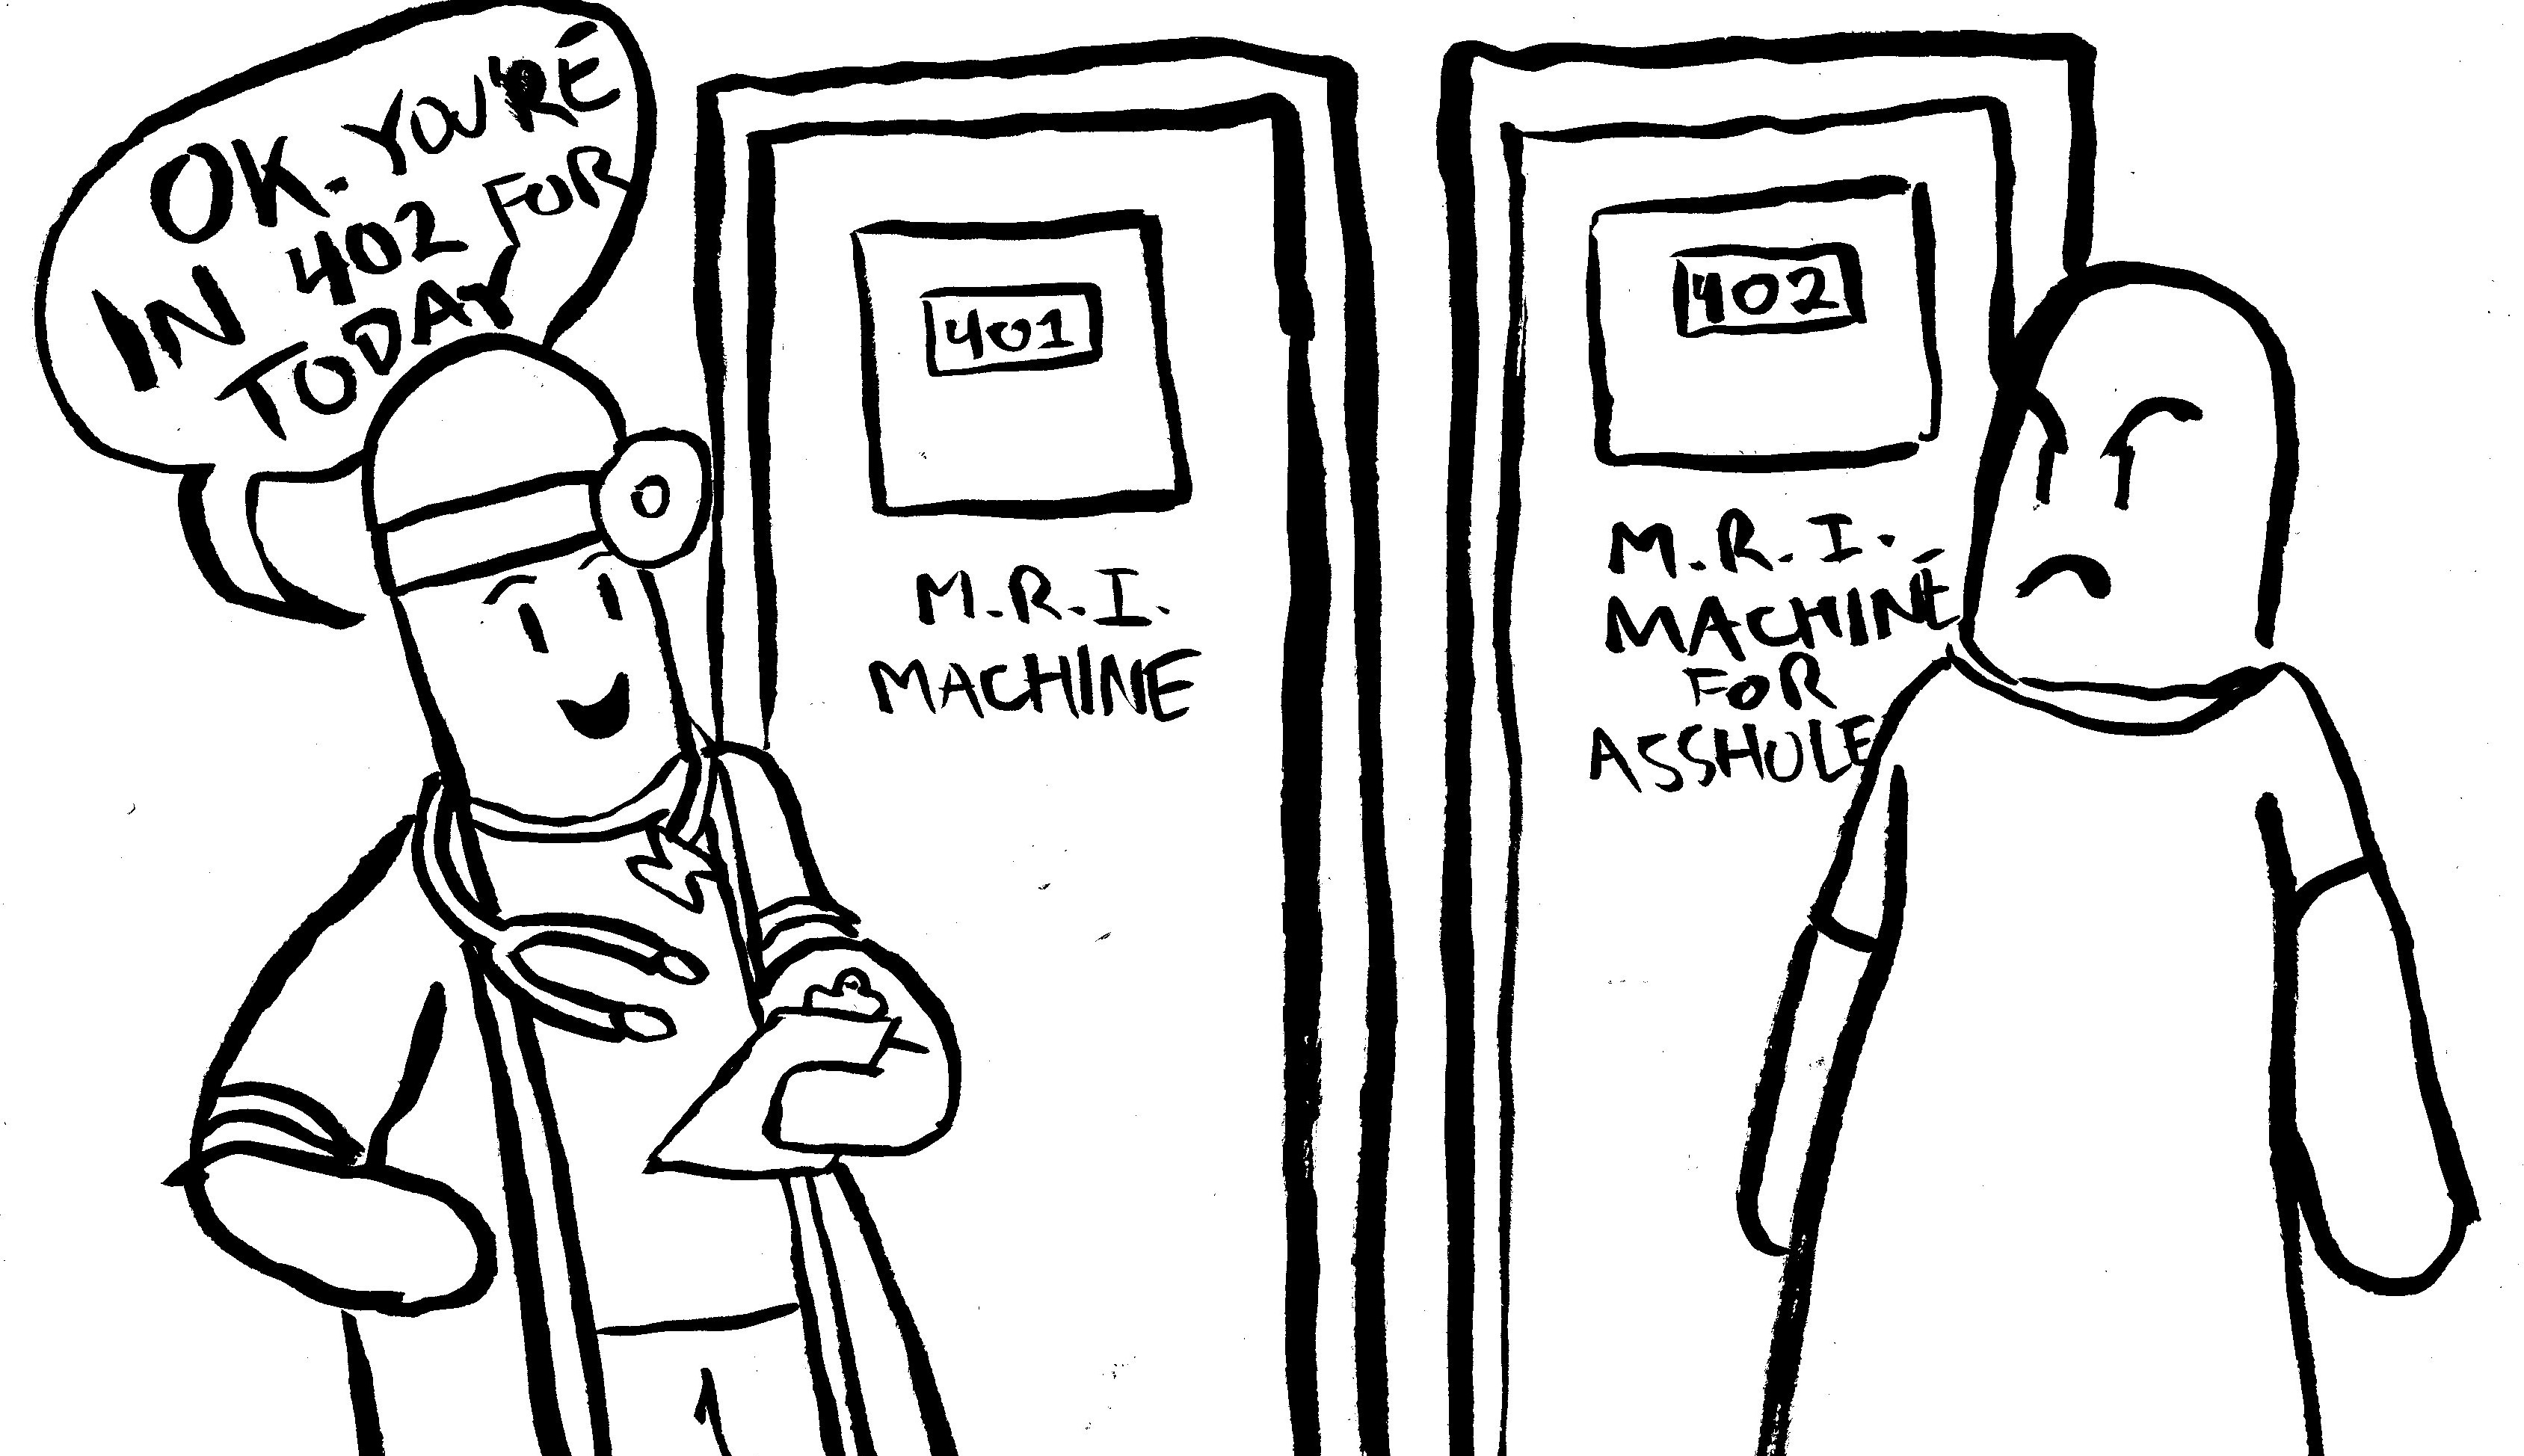 OK. YOU'RE
IN 402 FOR
TODAY
401
M.R.I.
MACHINE
402
M.R.I.
MACHINE
FOR
ASSHOLE